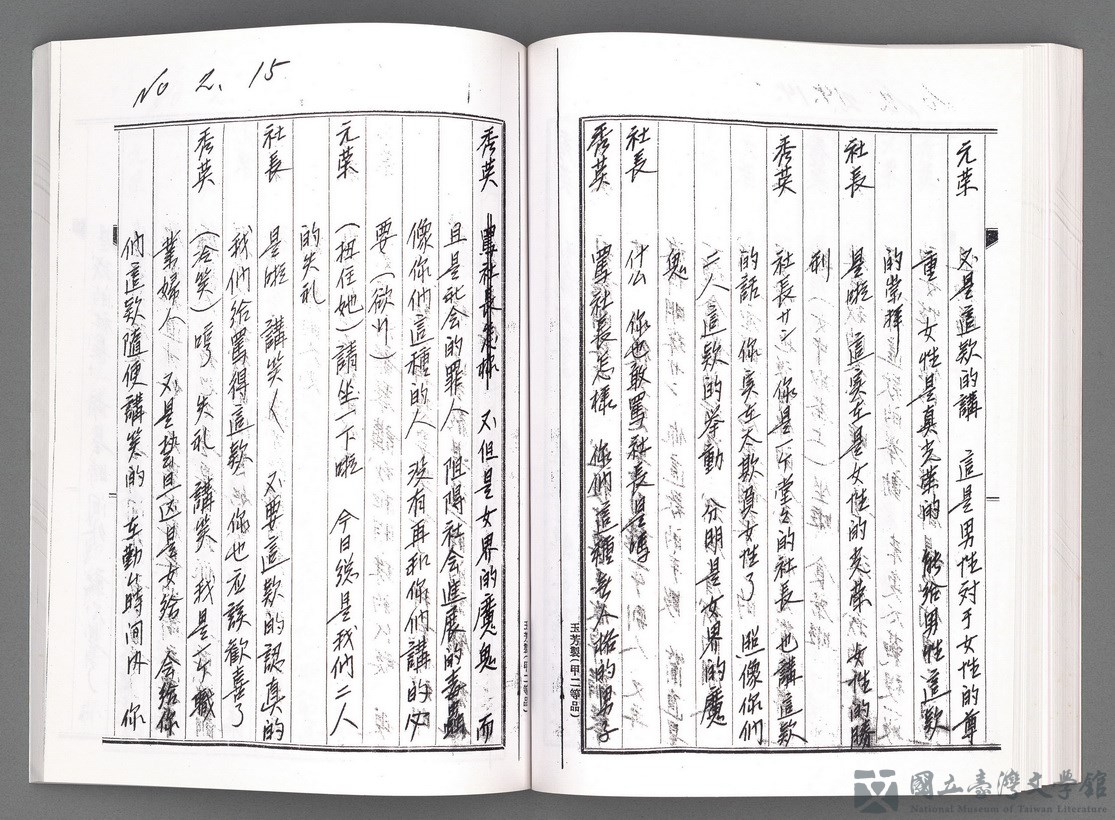 元荣 不是這款的講 這是男性对于女性的尊
重 女性是真光荣的 能給男性這款
的崇拜
社長 是啦 這実在是女性的光荣 女性的勝
利
秀英 社長サン 你是一个堂々的社長 也講這款
的話 你実在太欺負女性了 照像你們
二人 這款的举動 分明是女界的魔
鬼
社長 什么 你也敢罵社長是嗎
秀英 罵社長怎樣 你們這種無人格的男子
玉芳製(甲二等品)
No 2. 15
秀英 罵社長怎樣 不但是女界的魔鬼 而
且是社会的罪人 阻碍社会進展的毒蟲
像你們這種的人 没有再和你們講的必
要(欲行)
元荣 (扭住她)請坐一下啦 今日総是我們二人
的失礼
社長 是啦 講笑々 不要這款的認真的
我們給罵得這款 你也应該歓喜了
秀英 (冷笑)哼 失礼 講笑 我是一个職
業婦人 不是 給你
們這款隨便講笑的 在勤公時间内 你
玉芳製(甲二等品)
國立臺灣文學館
National Museum of Taiwan Literature